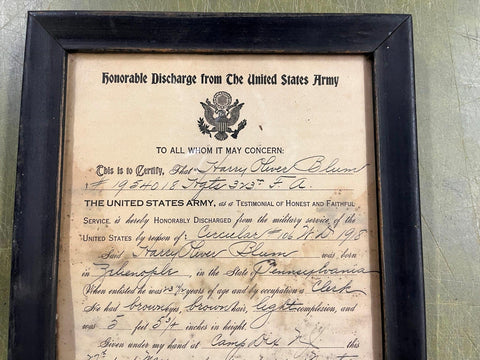 Honorable Discharge from The United States Army
TO ALL WHOM IT MAY CONCERN:
This is to Certify, That Harry Oliver Blum
# 1954018 Hqts 323rd F. A.
THE UNITED STATES ARMY, as a Testimonial of Honest and Faithful
Service, is hereby Honorably Discharged from the military service of the
United States by reason of: Circular # 106 W. D. 1918
Said Harry Oliver Blum was born
in Zelienople, in the State of Pennsylvania
When enlisted he was years of age and by occupation a Clerk
He had brown eyes, brown hair, light complexion, and
was 5 feet inches in height.
Given under my hand at Camp Dix N J this